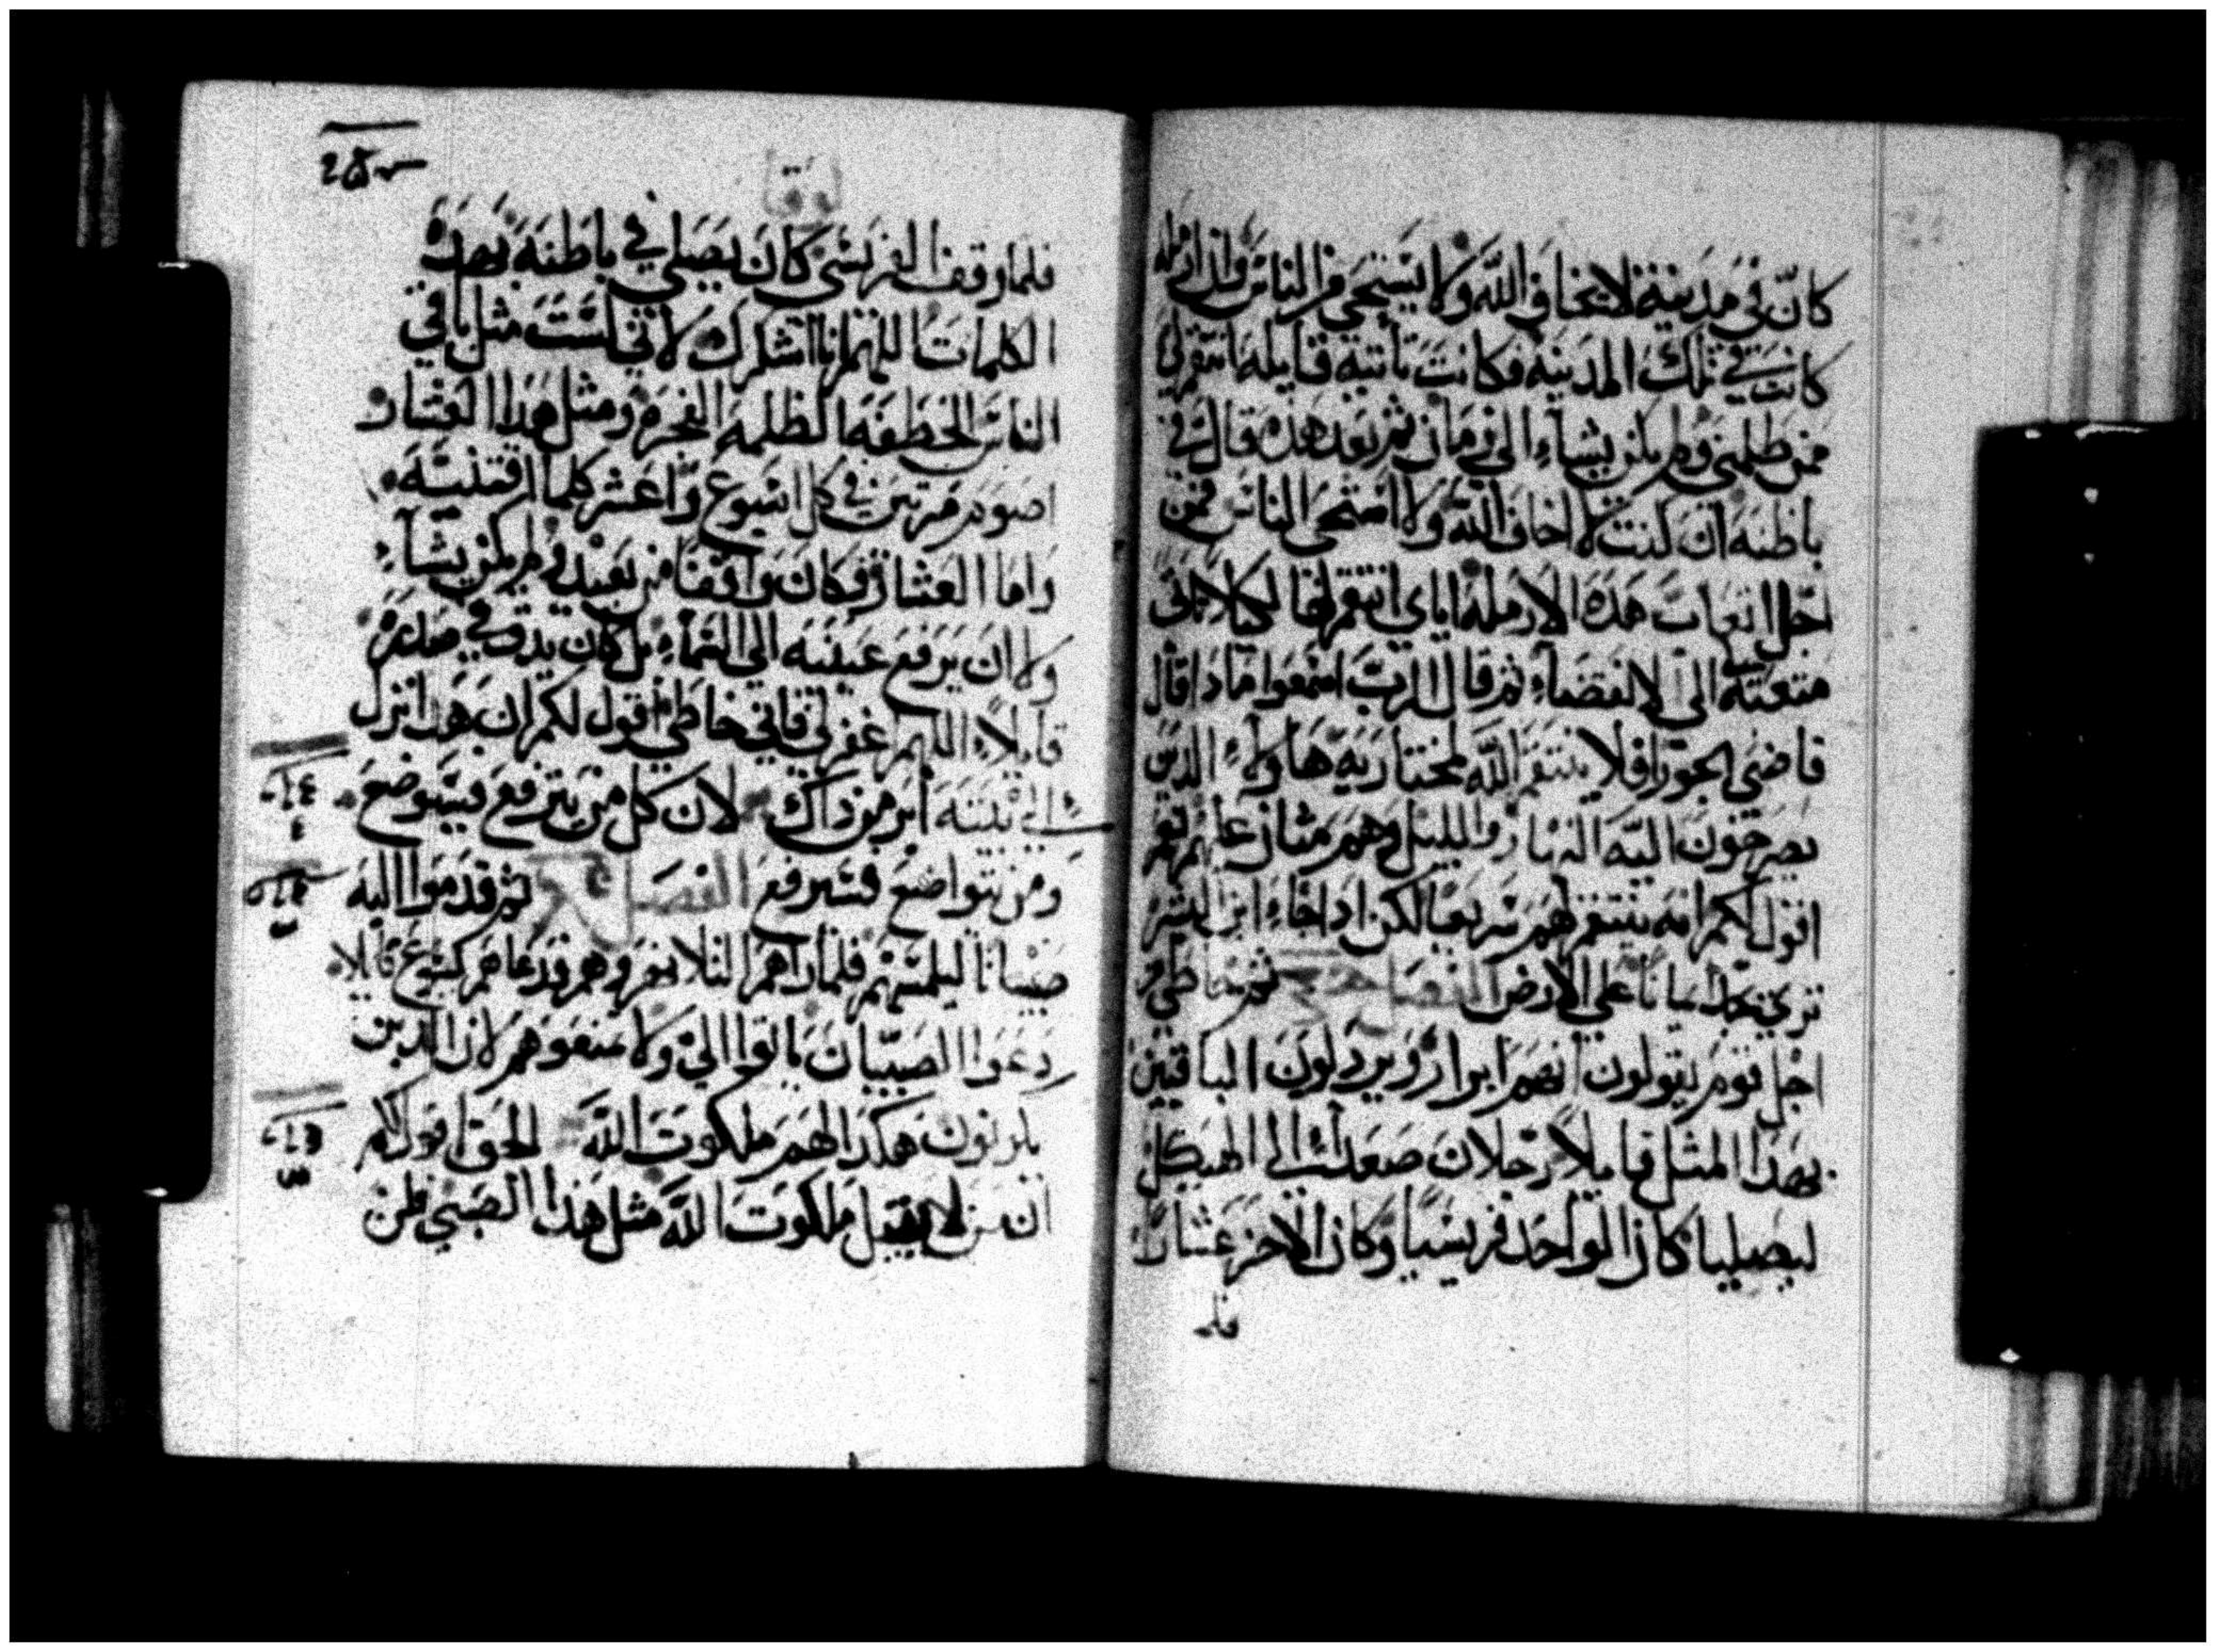 كان في مدينة لا يخاف الله ولا يستحي من الناس وان ارمله
كانت في تلك المدينه فكانت تاتيه قايله انتقم لي
ممن ظلمني ولم يكن يشاء الي زمان ثم بعد هذه قال في
باطنه ان كنت لا اخاف الله ولا استحي الناس فمن
اجل اتعاب هذه الارمله اياي انتقم لها لكيلا تاتي
متعتة الي الانقضاء ثم قال الرب اسمعوا ماذا قال
قاضي الجور افلا ينتقم الله لمختاريه هاولاء الذين
يصرخون اليه النهار والليل وهم متان عليهم نعم
اقول لكم انه ينتقم لهم سريعا لكن اذا جاء ابن البشر
تري يجد ايمانا علي الارض الفصل ثم
اجل قوم يقولون انهم ابرار ويردلون الباقين
بهدا المثل قايلا رجلان صعدا الي الهيكل
ليصليا كان الواحد فريسيا وكان الاخر عشارا
فلما
لوقا
فلما وقف الفريسي كان يصلي في باطنه بهده
الكلمات اللهم انا اشكرك لاني لست مثل باقي
الناس الخطفه الظلمه الفجره ومثل هدا العشار
اصوم مرتين في كل اسبوع واعشر كلما اقتنيته
واما العشار فكان واقفا من بعيد ولم يكن يشاء
ولا ان يرفع عينيه الي السماء بل كان يدق في صدره
قايلا اللهم اغفر لي فاني خاطي اقول لكم ان هدا نزل
الي بيته ابر من داك لان كل من يترفع فيتوضع
ومن يتواضع فسيرفع الفصل ثم قدموا اليه
صبيانا ليلمسهم فلما راهم التلاميذ زجروهم فدعاهم يسوع قايلا
دعوا الصبيان ياتوا الي ولا تمنعوهم لان الدين
يكونون هكدا لهم ملكوت الله الحق اقول لكم
ان من لا يقبل ملكوت الله مثل هدا الصبي فلن